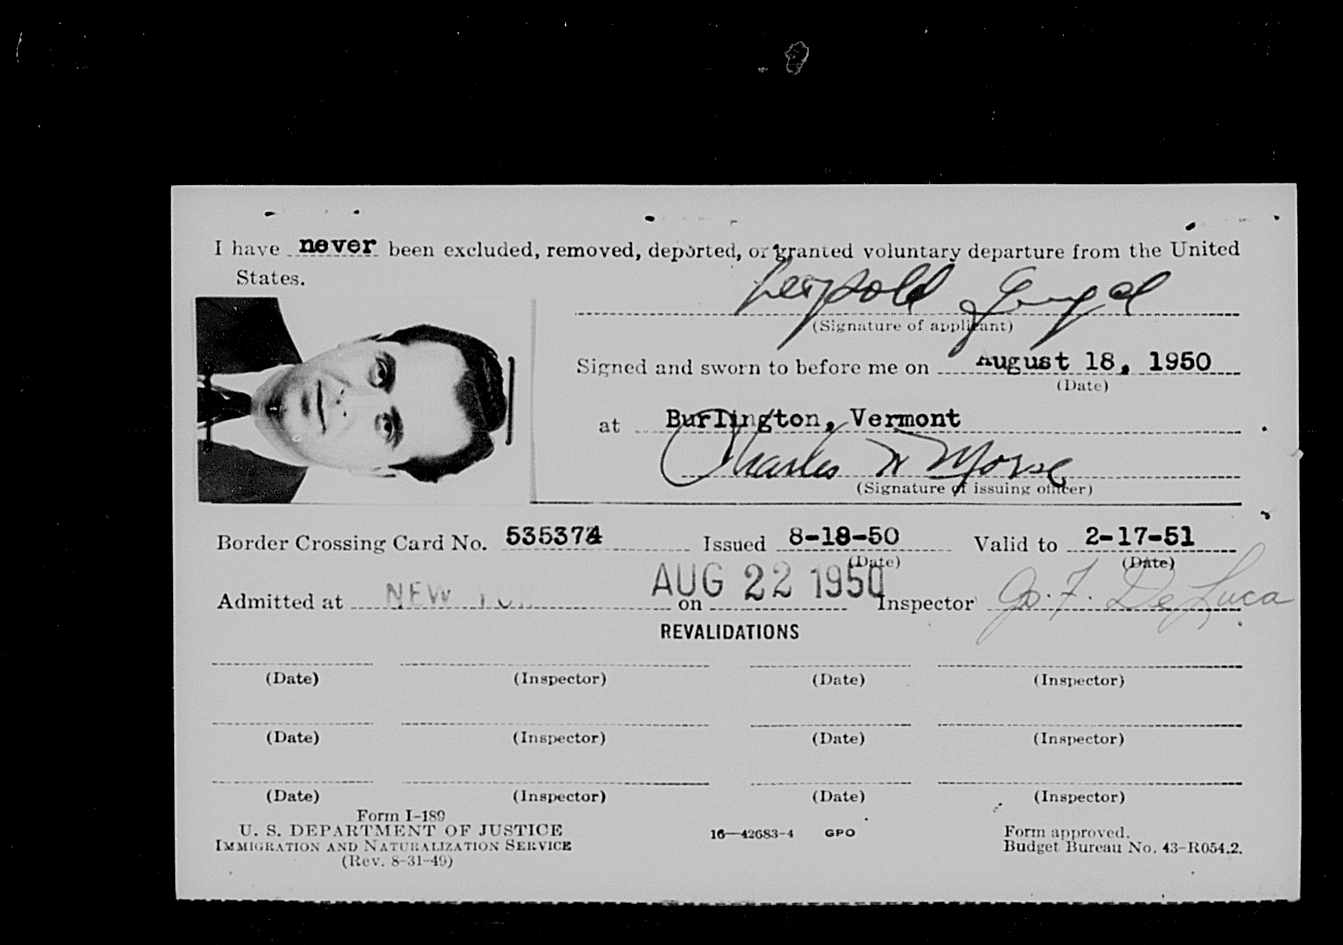 I have never been excluded, removed, deported, or granted voluntary departure from the United
States.
Leopold
(Signature of applicant)
Signed and sworn to before me on August 18, 1950
(Date)
at Burlington, Vermont
Charles W Morse
(Signature of issuing officer)
Border Crossing Card No. 535374 Issued 8-18-50 Valid to 2-17-51
(Date) (Date)
Admitted at NEW on AUG 22 1950 Inspector Jo. F. DeLuca
REVALIDATIONS
(Date) (Inspector) (Date) (Inspector)
(Date) (Inspector) (Date) (Inspector)
(Date) (Inspector) (Date) (Inspector)
Form I-189
U. S. DEPARTMENT OF JUSTICE 16—42683-4 GPO Form approved.
IMMIGRATION AND NATURALIZATION SERVICE Budget Bureau No. 43-R054.2.
(Rev. 8-31-49)